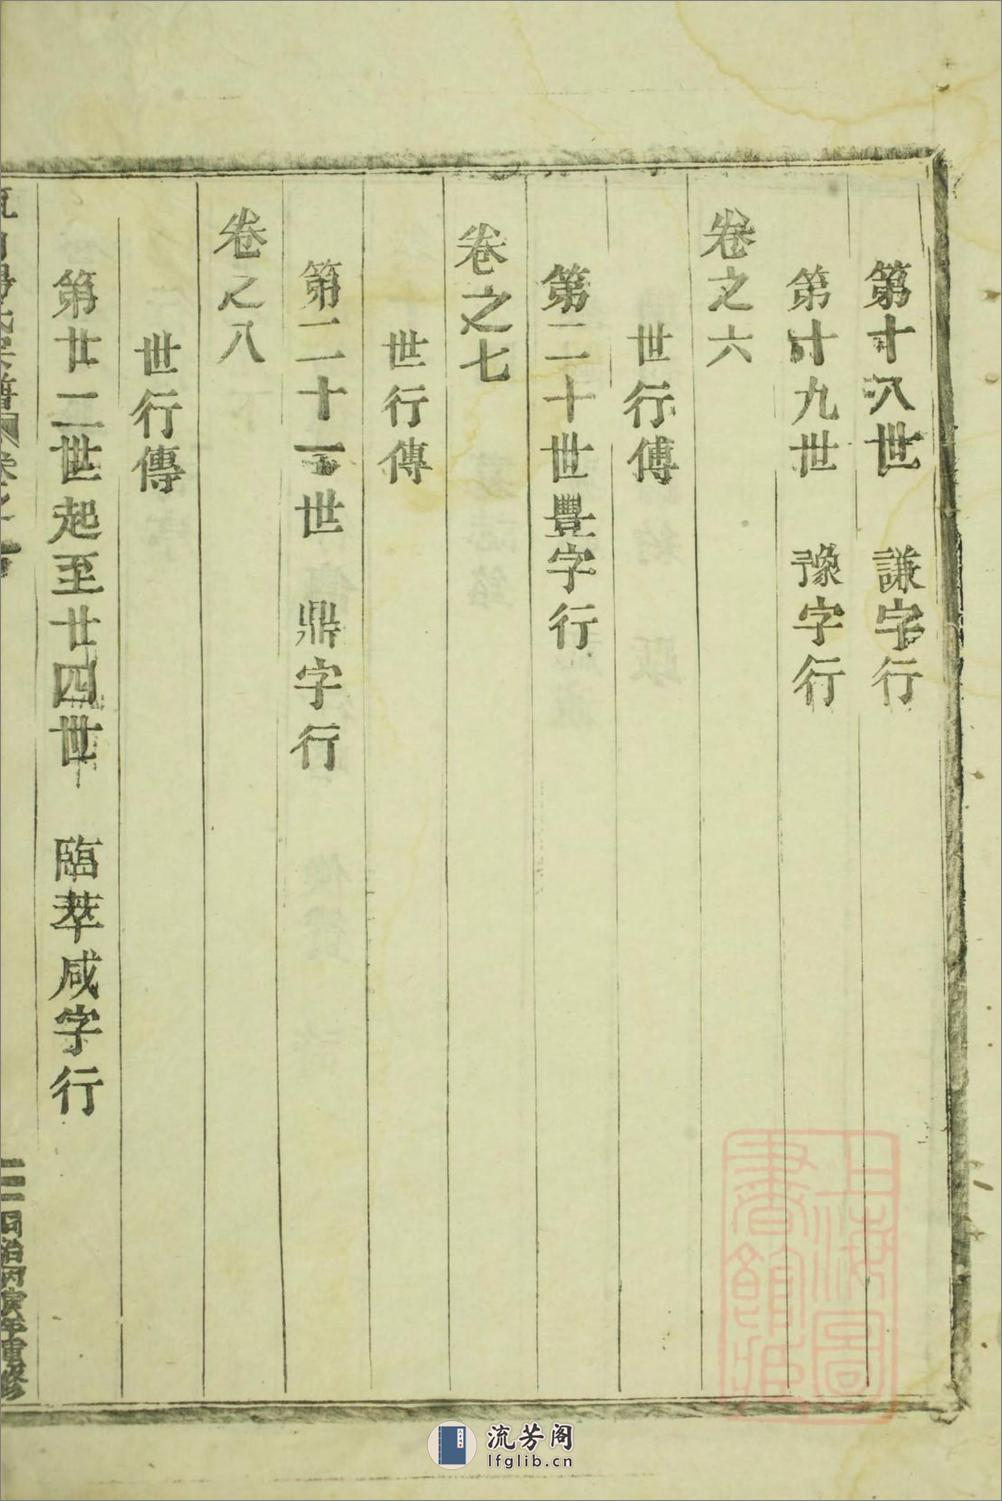 第十八世　謙字行
第十九世　豫字行
卷之六
世行傳
第二十世豐字行
卷之七
世行傳
第二十一世　鼎字行
卷之八
世行傳
第廿二世起至廿四世　臨萃咸字行
氏宗譜　卷之
同治丙寅年重修
上海圖書館藏
流芳阁
lfglib.cn